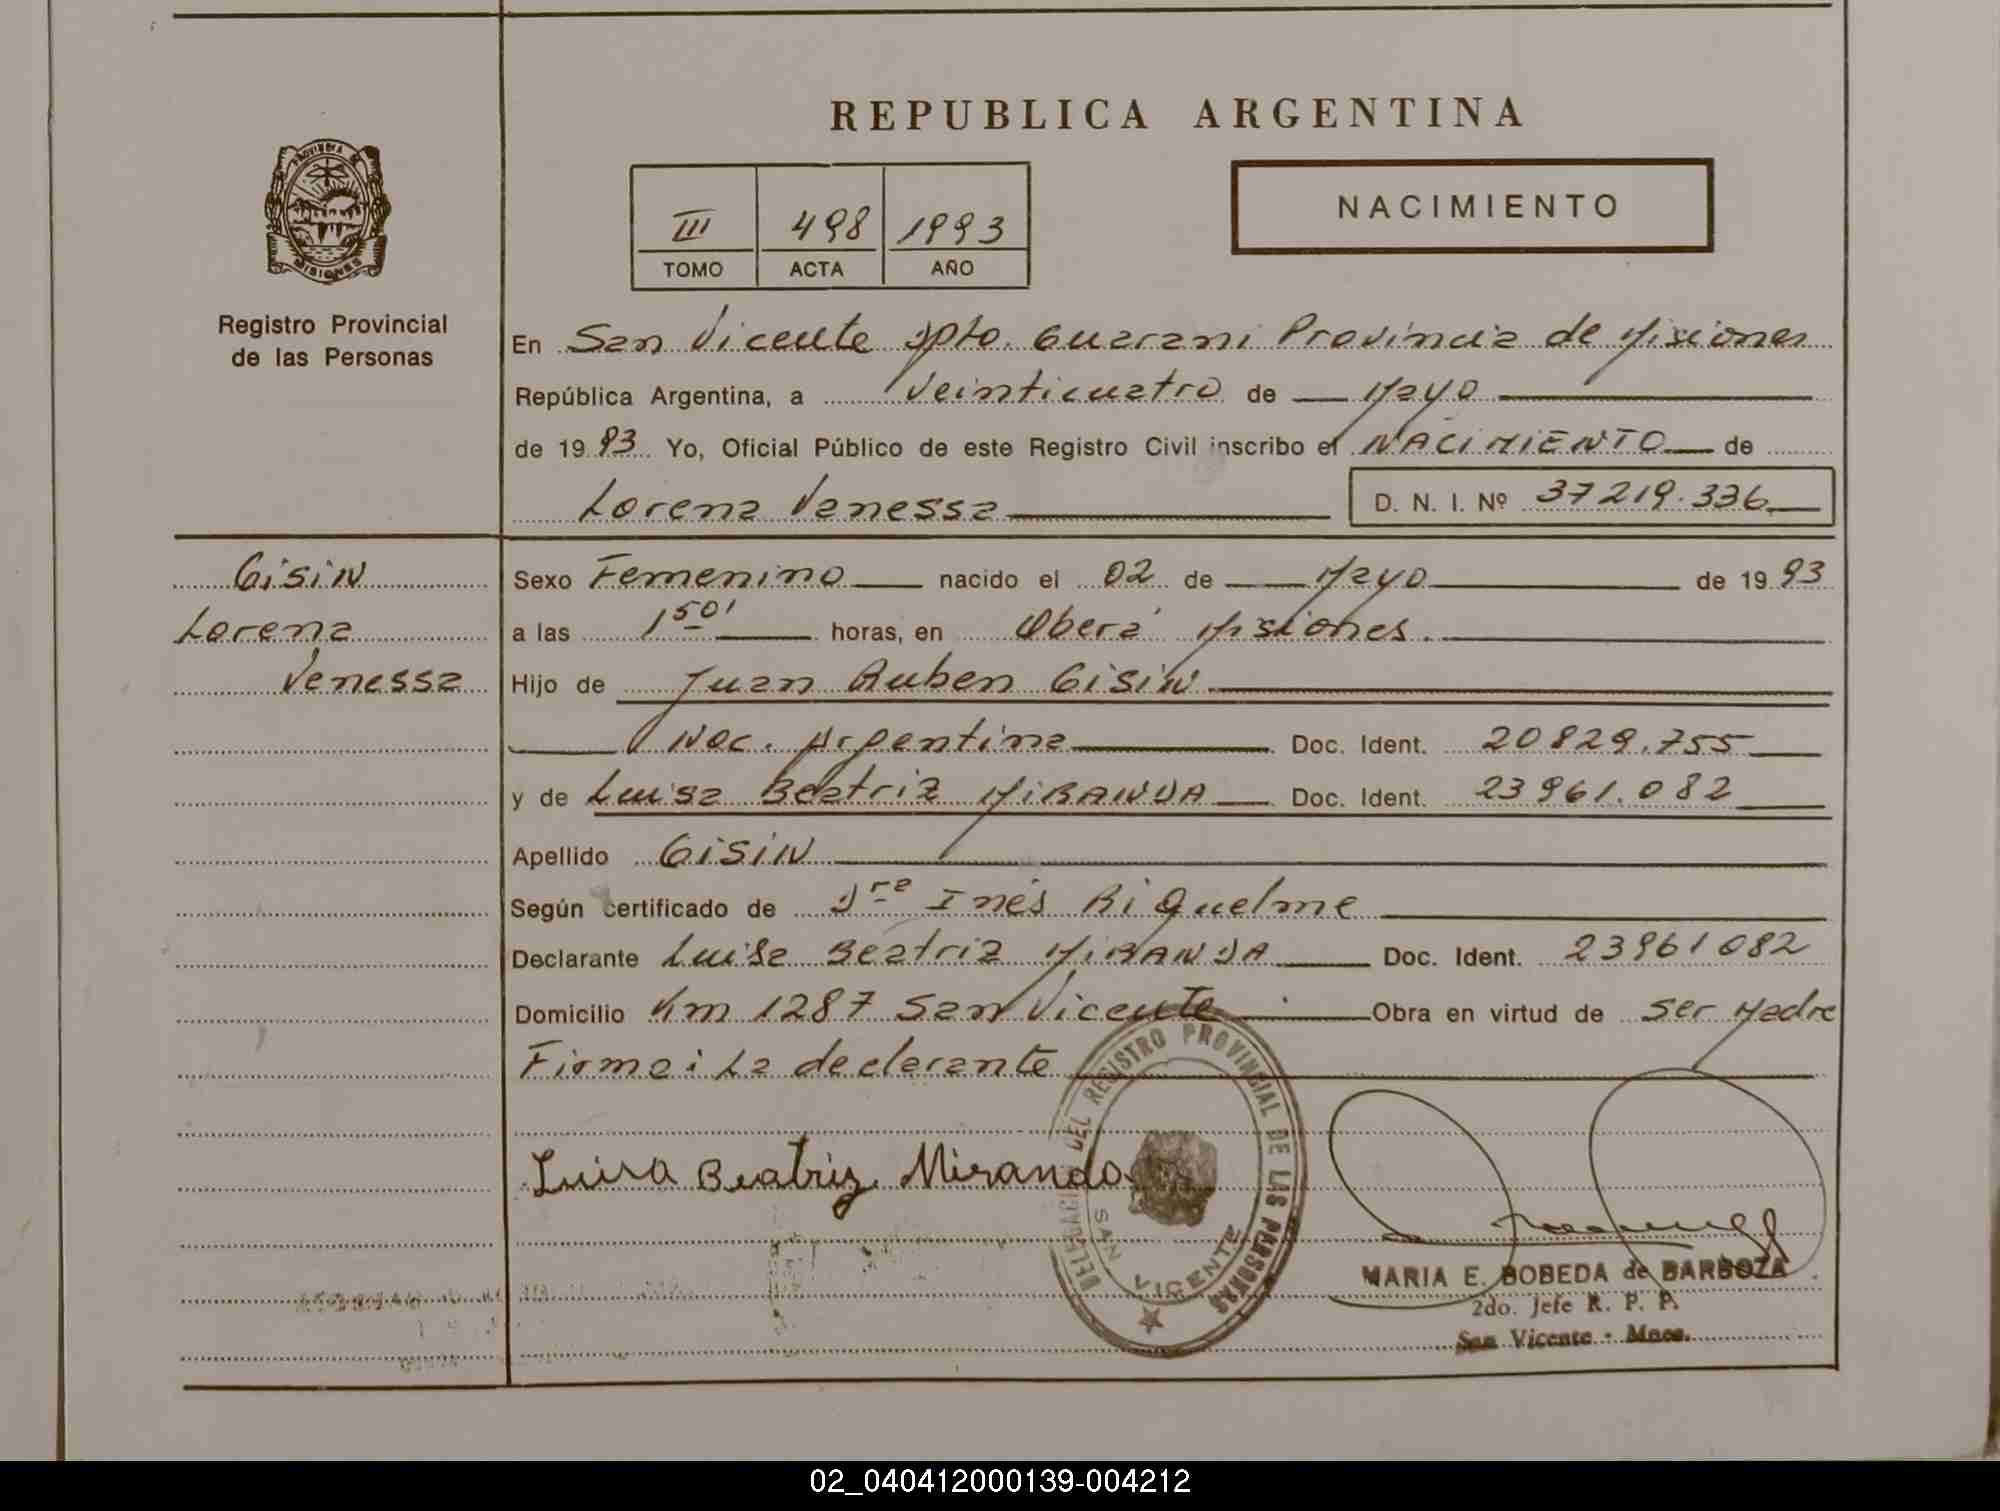 REPUBLICA ARGENTINA
PROVINCIA DE
MISIONES
Registro Provincial
de las Personas
III 498 1993
TOMO ACTA AÑO
NACIMIENTO
En San Vicente Dpto. Guarani Provincia de Misiones
República Argentina, a veinticuatro de Mayo
de 19 93 Yo, Oficial Público de este Registro Civil inscribo el NACIMIENTO de
Lorena Vanessa D. N. I. Nº 37219.336
Gisin
Lorena
Vanessa
Sexo Femenino nacido el 02 de Mayo de 19 93
a las 1 50' horas, en Oberá Misiones.
Hijo de Juan Ruben Gisin
Nac. Argentina Doc. Ident. 20829.755
y de Luisa Beatriz MIRANDA Doc. Ident. 23961.082
Apellido GISIN
Según certificado de Dra Inés Riquelme
Declarante Luisa Beatriz MIRANDA Doc. Ident. 23961082
Domicilio Km 1287 San Vicente Obra en virtud de ser Madre
Firma: La declarante
Luisa Beatriz Miranda
DELEGACION DEL REGISTRO PROVINCIAL DE LAS PERSONAS
SAN VICENTE
MARIA E. BOBEDA de BARBOZA
2do. Jefe R. P. P.
San Vicente - Mnes.
02_040412000139-004212